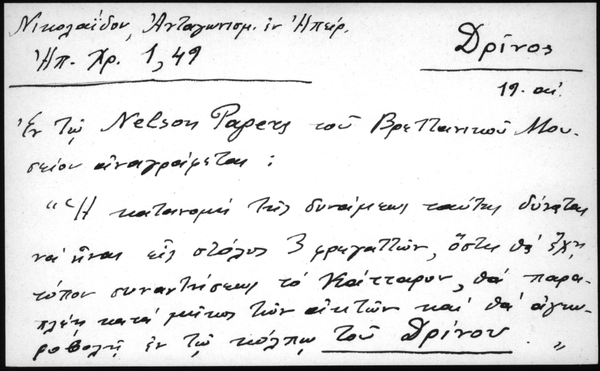 Νικολαΐδου, Ἀνταγωνισμ. ἐν Ἠπείρ.
Ἠπ. Χρ. 1, 49
Δρίνος
19. αἰ.
Ἐν τῷ Nelson Papers τοῦ Βρεττανικοῦ Μου-
σείου ἀναγράφεται :
"Ἡ κατανομὴ τῆς δυνάμεως ταύτης δύναται
νὰ εἶναι εἷς στόλος 3 φρεγαττῶν, ὅστις θὰ ἔχῃ
τόπον συναντήσεως τὸ Κάτταρον, θὰ παρα-
πλέῃ κατὰ μῆκος τῶν ἀκτῶν καὶ θὰ ἀγκυ-
ροβολῇ ἐν τῷ κόλπῳ τοῦ Δρίνου. "